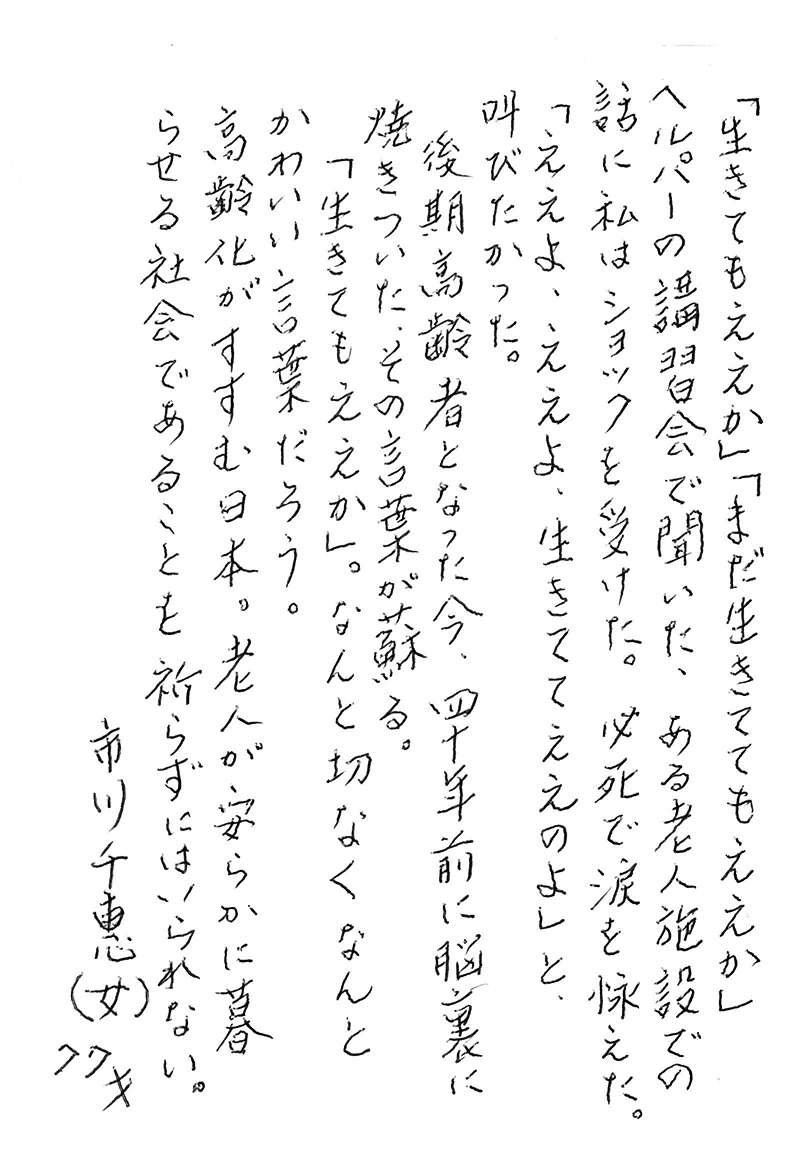 「生きてもええか」「まだ生きててもええか」
ヘルパーの講習会で聞いた、ある老人施設での
話に私はショックを受けた。必死で涙を怺えた。
「ええよ、ええよ、生きててええのよ」と、
叫びたかった。
後期高齢者となった今、四十年前に脳裏に
焼きついた、その言葉が蘇る。
「生きてもええか」。なんと切なくなんと
かわいい言葉だろう。
高齢化がすすむ日本。老人が安らかに暮
らせる社会であることを祈らずにはいられない。
市川千恵(女)
77才